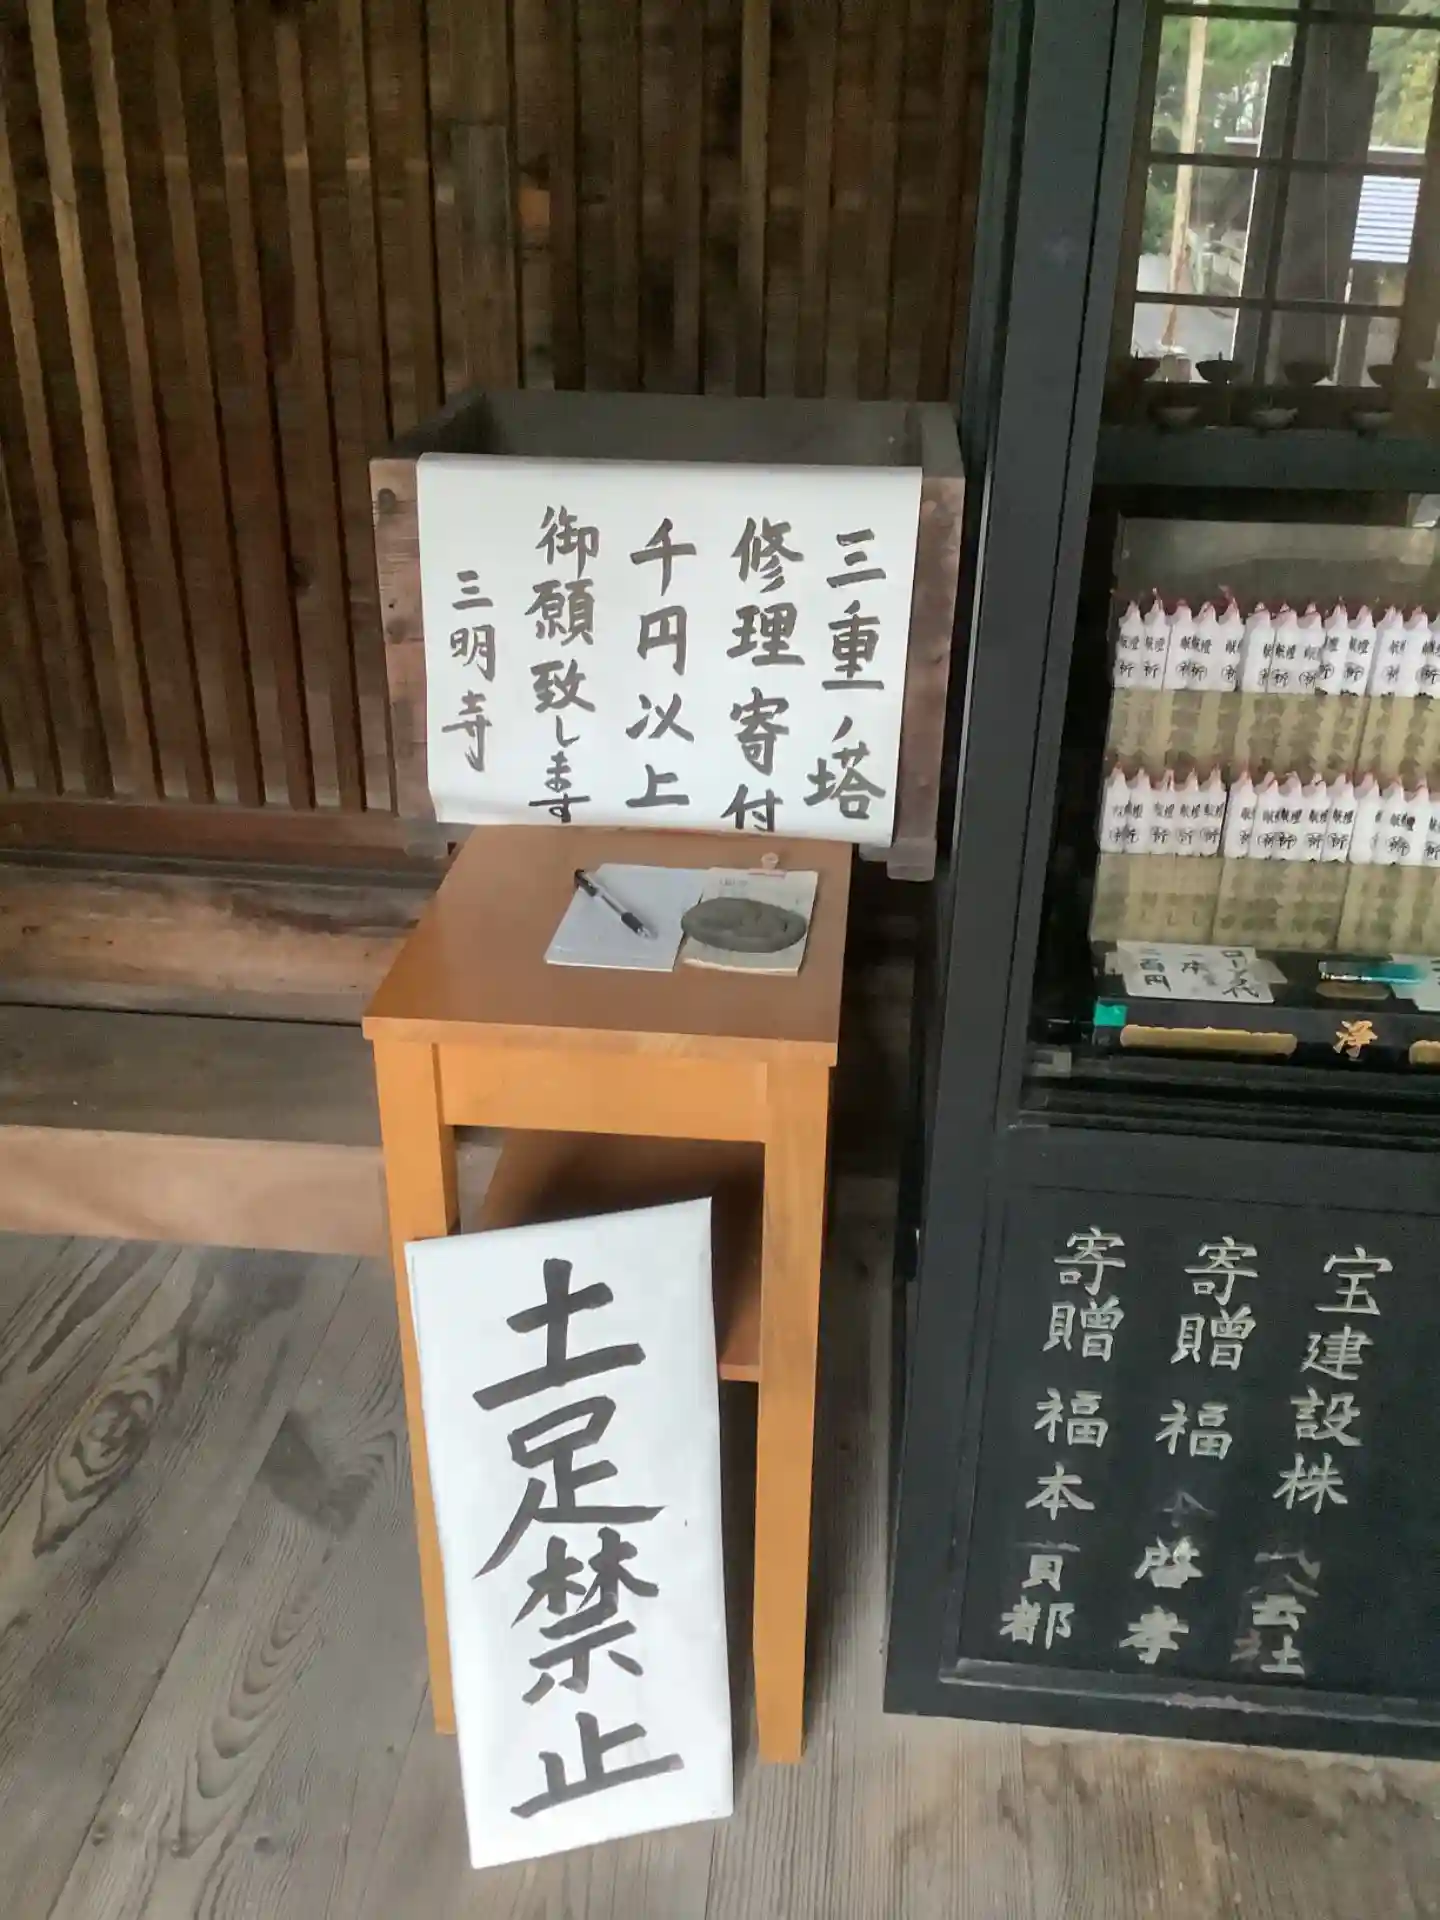 三重ノ塔
修理寄付
千円以上
御願致します
三明寺
土足禁止
ローソク代
一本
二百円
浄
宝建設株式会社
寄贈 福本啓孝
寄贈 福本
都